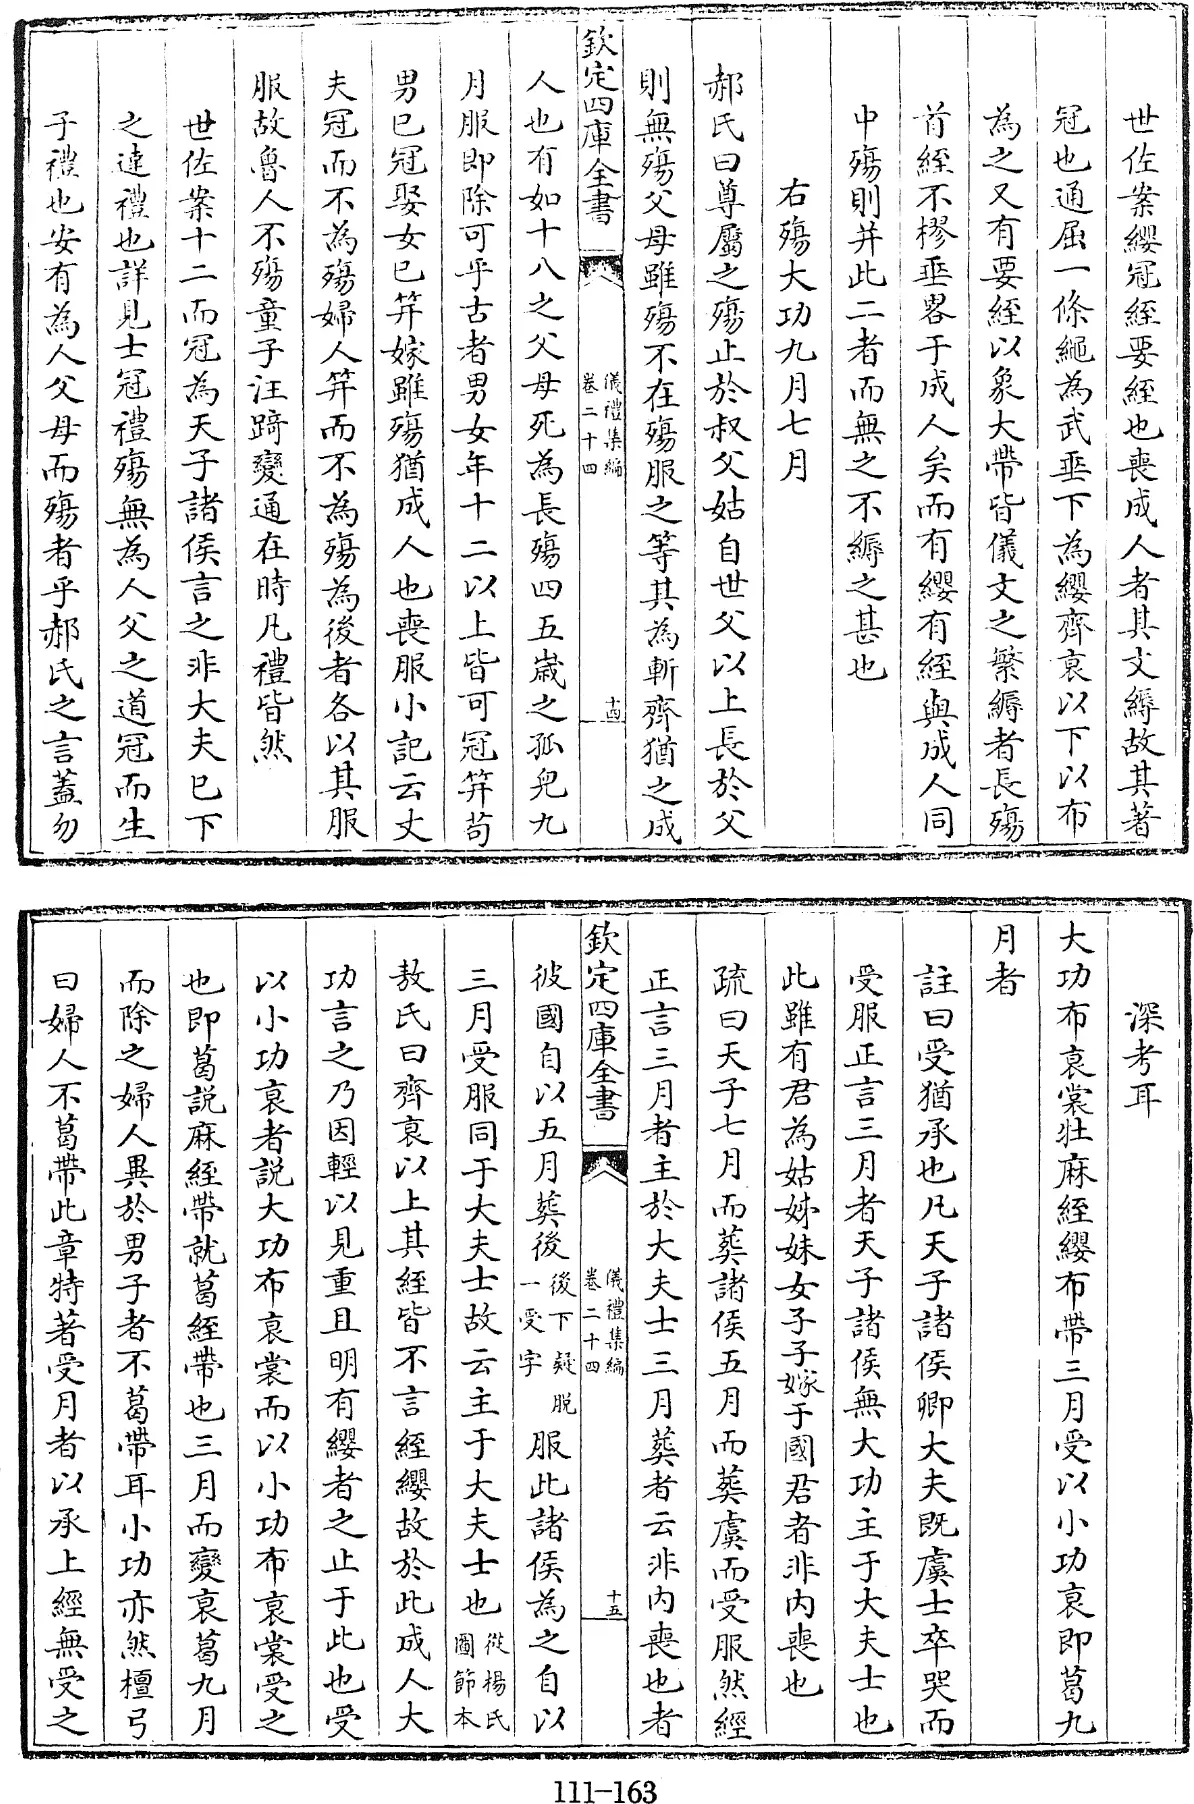 世佐案纓冠絰要絰也喪成人者其文縟故其著
冠也通屈一條繩為武垂下為纓齊衰以下以布
為之又有要絰以象大帶皆儀文之繁縟者長殤
首絰不樛垂畧于成人矣而有纓有絰與成人同
中殤則并此二者而無之不縟之甚也
右殤大功九月七月
郝氏曰尊屬之殤止於叔父姑自世父以上長於父
則無殤父母雖殤不在殤服之等其為斬齊猶之成
欽定四庫全書
儀禮集編
卷二十四
十四
人也有如十八之父母死為長殤四五歲之孤兒九
月服即除可乎古者男女年十二以上皆可冠笄苟
男已冠娶女已笄嫁雖殤猶成人也喪服小記云丈
夫冠而不為殤婦人笄而不為殤為後者各以其服
服故魯人不殤童子汪踦變通在時凡禮皆然
世佐案十二而冠為天子諸侯言之非大夫已下
之達禮也詳見士冠禮殤無為人父之道冠而生
子禮也安有為人父母而殤者乎郝氏之言蓋勿
深考耳
大功布衰裳牡麻絰纓布帶三月受以小功衰即葛九
月者
註曰受猶承也凡天子諸侯卿大夫既虞士卒哭而
受服正言三月者天子諸侯無大功主于大夫士也
此雖有君為姑姊妹女子子嫁于國君者非內喪也
疏曰天子七月而葬諸侯五月而葬虞而受服然經
正言三月者主於大夫士三月葬者云非內喪也者
欽定四庫全書
儀禮集編
卷二十四
十五
彼國自以五月葬後後下疑脫一受字服此諸侯為之自以
三月受服同于大夫士故云主于大夫士也從楊氏圖節本
敖氏曰齊衰以上其絰皆不言絰纓故於此成人大
功言之乃因輕以見重且明有纓者之止于此也受
以小功衰者說大功布衰裳而以小功布衰裳受之
也即葛說麻絰帶就葛絰帶也三月而變衰葛九月
而除之婦人異於男子者不葛帶耳小功亦然檀弓
曰婦人不葛帶此章特著受月者以承上經無受之
111-163